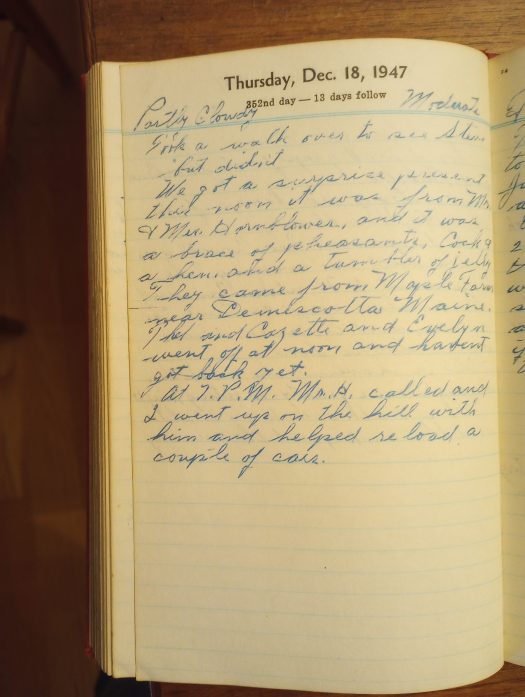 Thursday, Dec. 18, 1947
352nd day — 13 days follow
Partly Cloudy Moderate
Took a walk over to see
but didn't
We got a surprise present
this noon it was from Mr
& Mrs. Hornblower, and it was
a brace of pheasants, Cock &
a hen, and a tumbler of jelly
They came from Maple Farm
near Demiscotta Maine.
and Cozette and Evelyn
went off at noon and havent
got back yet.
At 7. P.M. Mr. H. called and
I went up on the hill with
him and helped re load a
couple of cars.